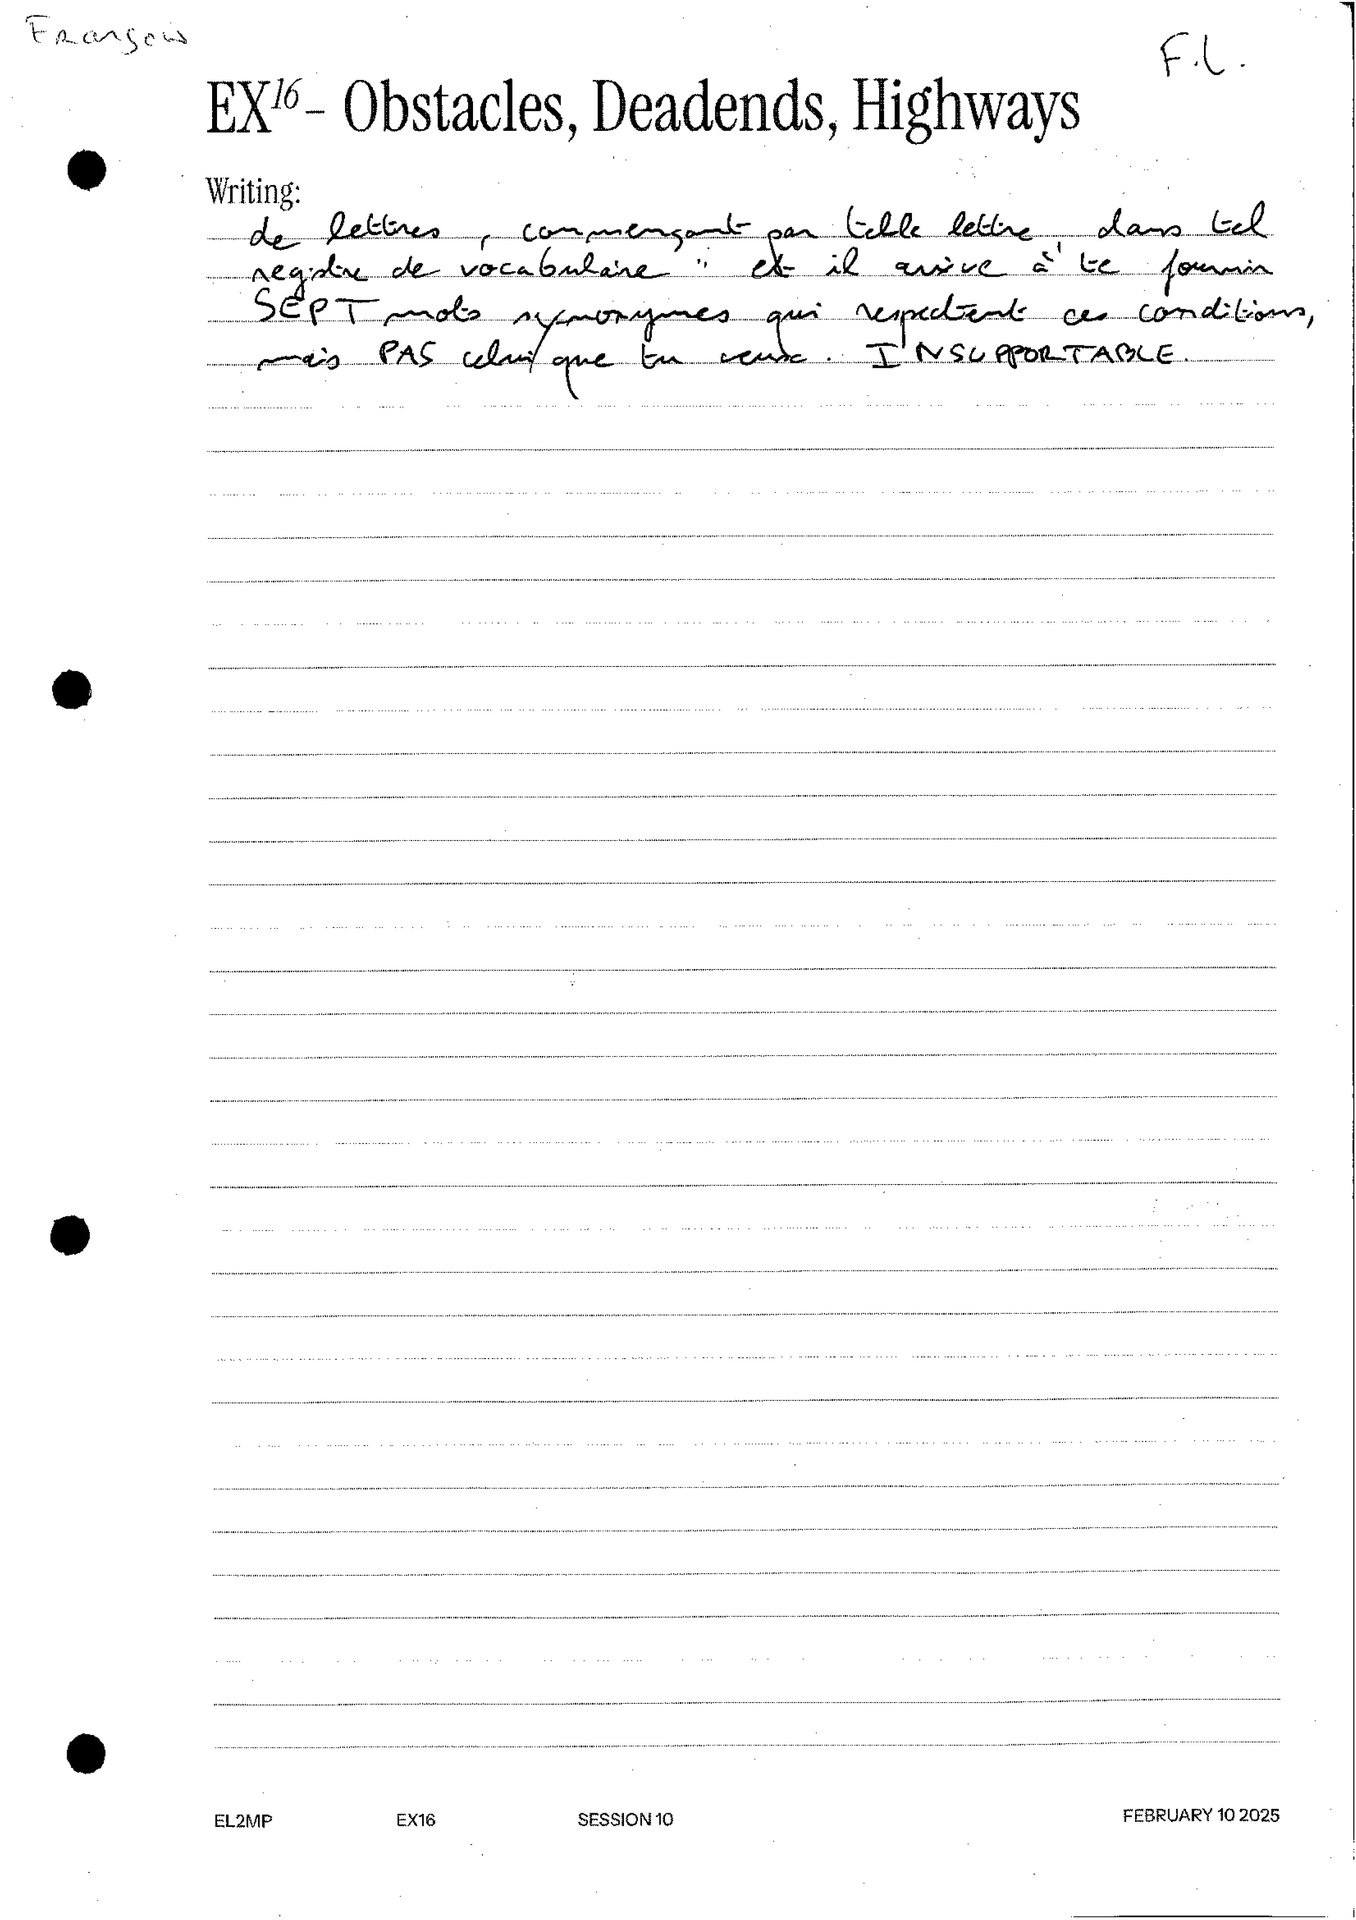 François
F.L.
EX16 – Obstacles, Deadends, Highways
Writing:
de lettres, commençant par telle lettre, dans tel
registre de vocabulaire" et il arrive à te fournir
SEPT mots synonymes qui respectent ces conditions,
mais PAS celui que tu veux. INSUPPORTABLE.
EL2MP EX16 SESSION 10 FEBRUARY 10 2025